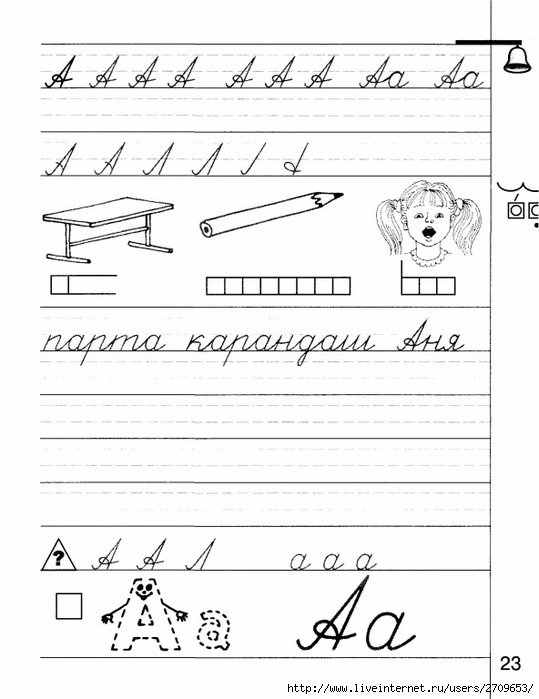 А А А А А А А Аа Аа
А А Л Л
парта карандаш Аня
? А А Л а а а
Аа Аа
23
http://www.liveinternet.ru/users/2709653/